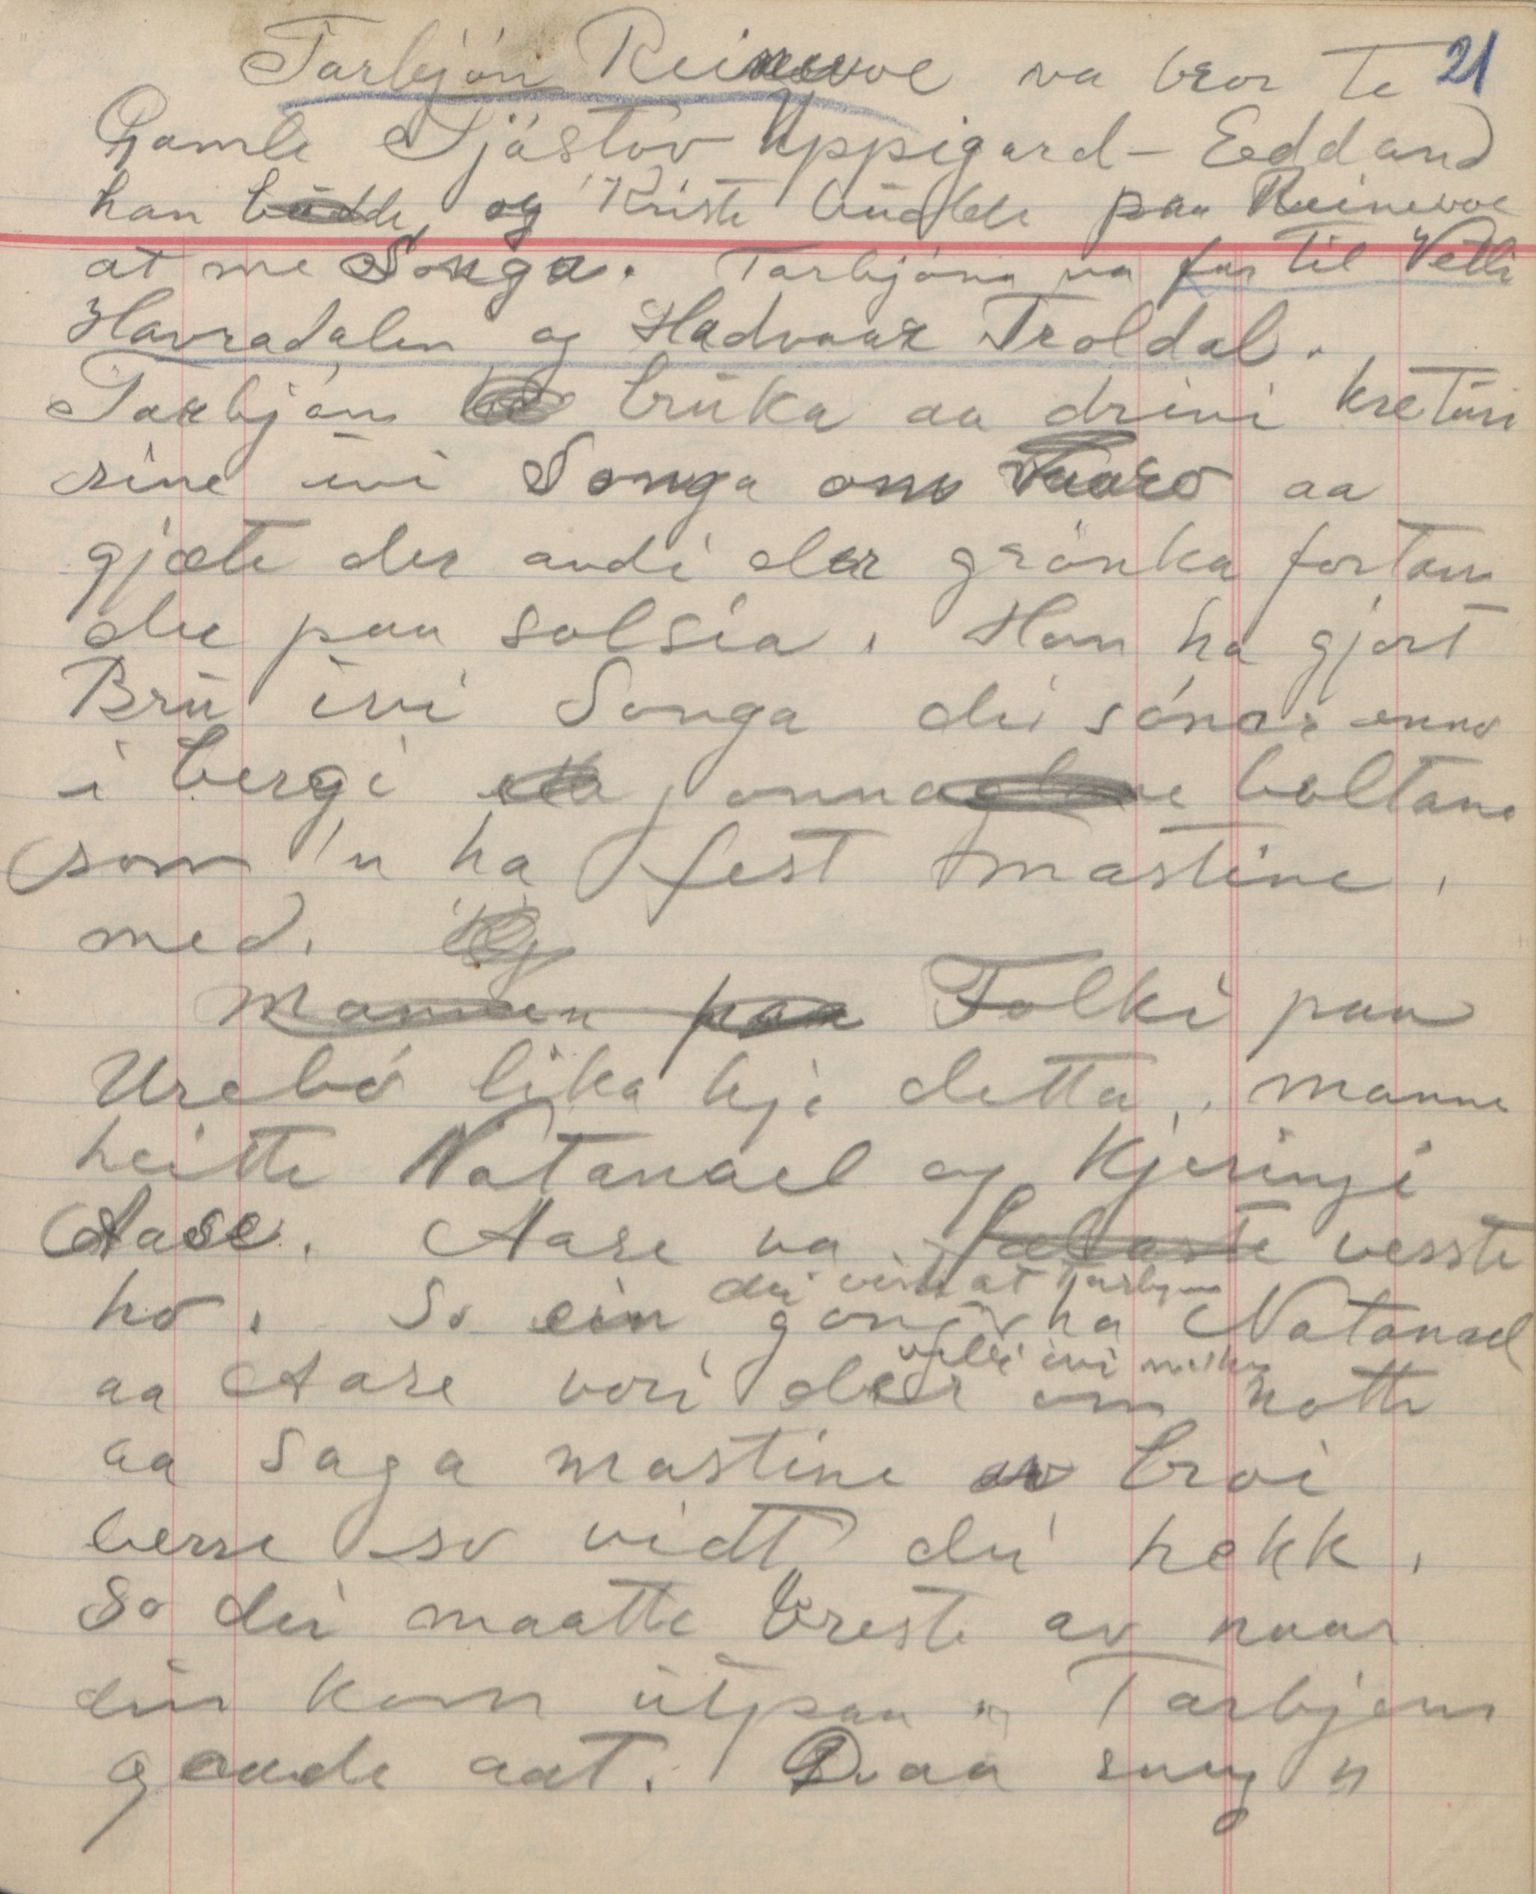 Tarbjón Reinevoe va bror te 21
Gamle Sjóstov Uppigard-Edland
han budde og Kriste budde paa Reinevoe
at me Songa. Tarbjónn va far til Vetli
Havradalen og Hadvaar Troldal.
Tarbjónn bruka aa drivi kretúri
sine ivi Songa om vaaro aa
gjæte der andi der grönka fortare
de paa solsia. Han ha gjort
Brú ivi Songa dei sónar enno
i bergi boltane
som 'n ha fest mastine
med.
Mannen paa Folki paa
Urebó lika kji detta, manne
heitte Natanael og Kjeringi
Aase. Aase va vesste
ho. So ein gong ha Natanael
dei visste at Tarbjónn
aa Aase vori der om notti
ville ivi
aa saga mastine av broi
berre so vidt dei hekk.
So dei maatte breste av naar
ein kom útpaa. Tarbjónn
gaande aat. Daa sung n